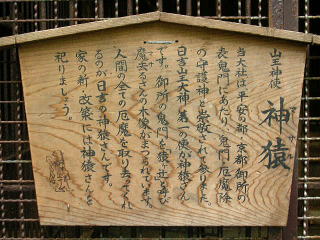 山王神使
神猿
当大社は平安の都、京都御所の
表鬼門にあたり、鬼門厄魔除
の守護神と崇敬されて参りました。
日吉山王大神、第一の使が神猿さん
です。御所の鬼門を猿ヶ辻と呼び
魔去るさんの木像がまつられています。
人間の全ての厄魔を取り去ってくれ
るのが日吉の神猿さんです。
家の新改築には神猿さんを
祀りましょう。